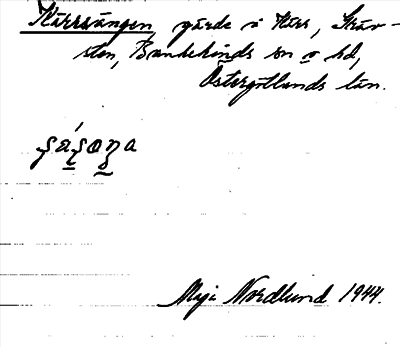 Kärrsängen gärde i Kärr, Skär-
sten, Bankekinds sn o hd,
Östergötlands län.
Maja Nordlund 1944.